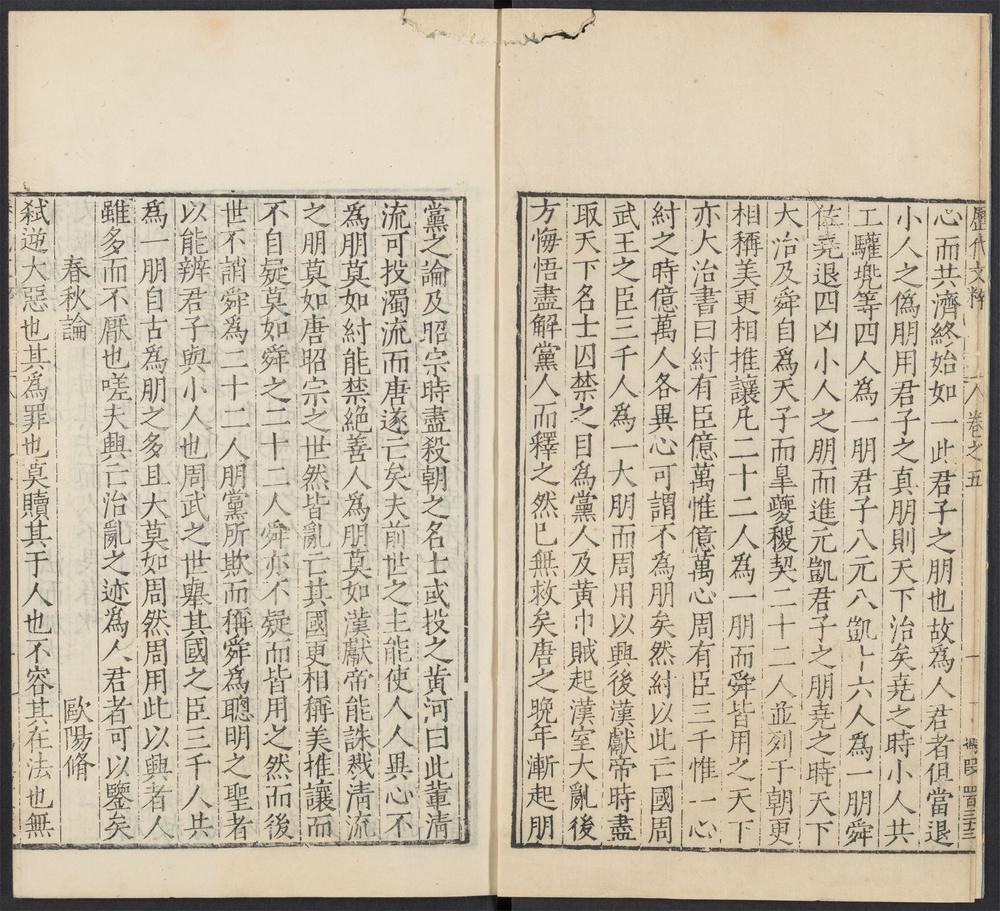 歷代文粹 八卷之五
心而共濟終始如一此君子之朋也故為人君者但當退
小人之僞朋用君子之真朋則天下治矣堯之時小人共
工驩兜等四人為一朋君子八元八凱十六人為一朋舜
佐堯退四凶小人之朋而進元凱君子之朋堯之時天下
大治及舜自為天子而皐夔稷契二十二人並列于朝更
相稱美更相推讓凡二十二人為一朋而舜皆用之天下
亦大治書曰紂有臣億萬惟億萬心周有臣三千惟一心
紂之時億萬人各異心可謂不為朋矣然紂以此亡國周
武王之臣三千人為一大朋而周用以興後漢獻帝時盡
取天下名士囚禁之目為黨人及黃巾賊起漢室大亂後
方悔悟盡解黨人而釋之然已無救矣唐之晚年漸起朋
黨之論及昭宗時盡殺朝之名士或投之黃河曰此輩清
流可投濁流而唐遂亡矣夫前世之主能使人人異心不
為朋莫如紂能禁絕善人為朋莫如漢獻帝能誅戮清流
之朋莫如唐昭宗之世然皆亂亡其國更相稱美推讓而
不自疑莫如舜之二十二人舜亦不疑而皆用之然而後
世不誚舜為二十二人朋黨所欺而稱舜為聰明之聖者
以能辨君子與小人也周武之世舉其國之臣三千人共
為一朋自古為朋之多且大莫如周然周用此以興者人
雖多而不厭也嗟夫興亡治亂之迹為人君者可以鑒矣
春秋論 歐陽脩
弒逆大惡也其為罪也莫贖其于人也不容其在法也無